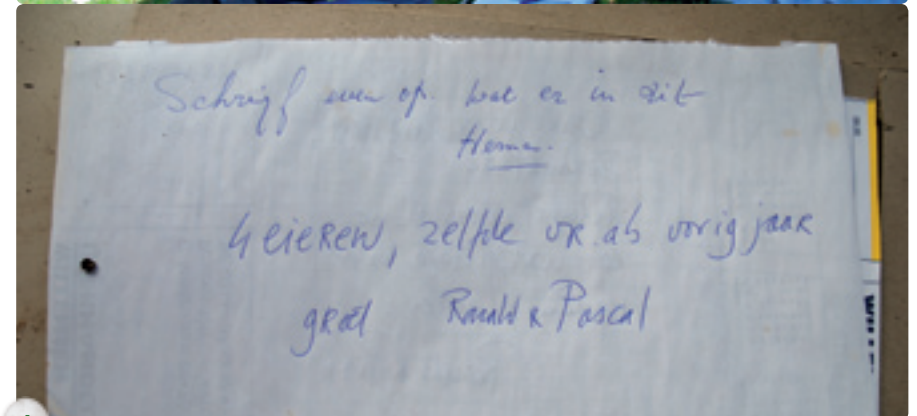 Schrijf even op. wat er in zit
Herman.
4 eieren, zelfde vr. als vorig jaar
groet Ronald & Pascal